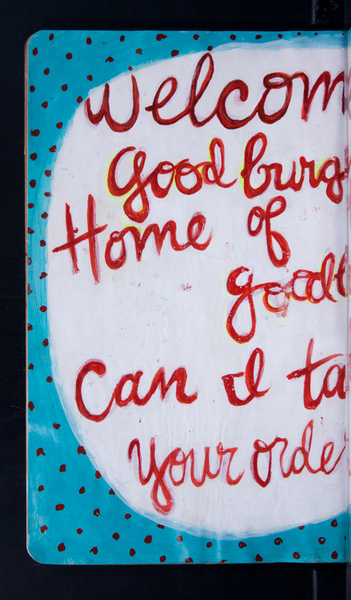 Welcom
Good burg
Home of
goodb
Can I ta
your orde